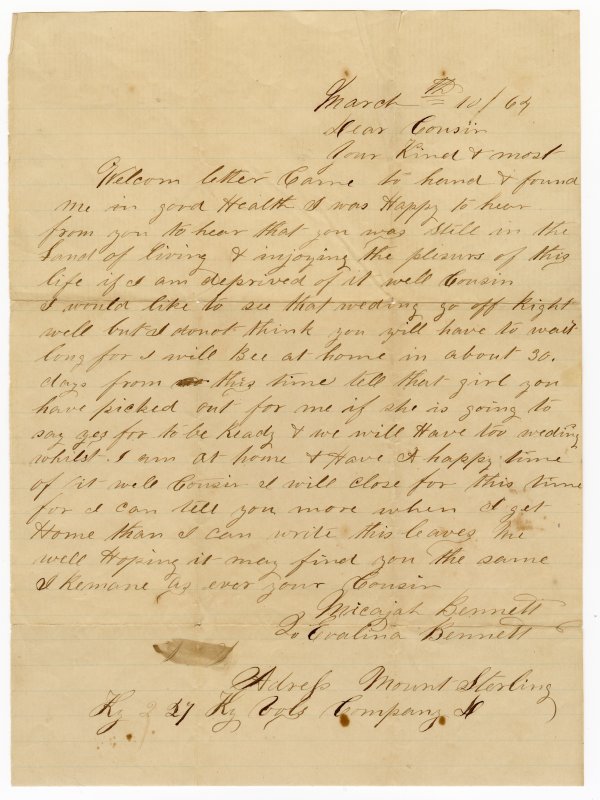 March 10th / 64
Dear Cousin
Your Kind & most
Welcom letter Came to hand & found
me in good Health I was Happy to hear
from you to hear that you was still in the
Land of living & injoying the plesurs of this
life if I am deprived of it well Cousin
I would like to see that weding go off Right
well but I donot think you will have to wait
long for I will Bee at home in about 30.
days from this time tell that girl you
have picked out for me if she is going to
say yes for to be Ready & we will Have too weding
whilst I am at home & Have A happy time
of it well Cousin I will close for this time
for I can tell you more when I get
Home than I can write this leaves me
well Hoping it may find you the same
I Remane as ever your Cousin
Micajah Bennett
To Evalina Bennett
Adress Mount Sterling
Ky Ky Vols Company